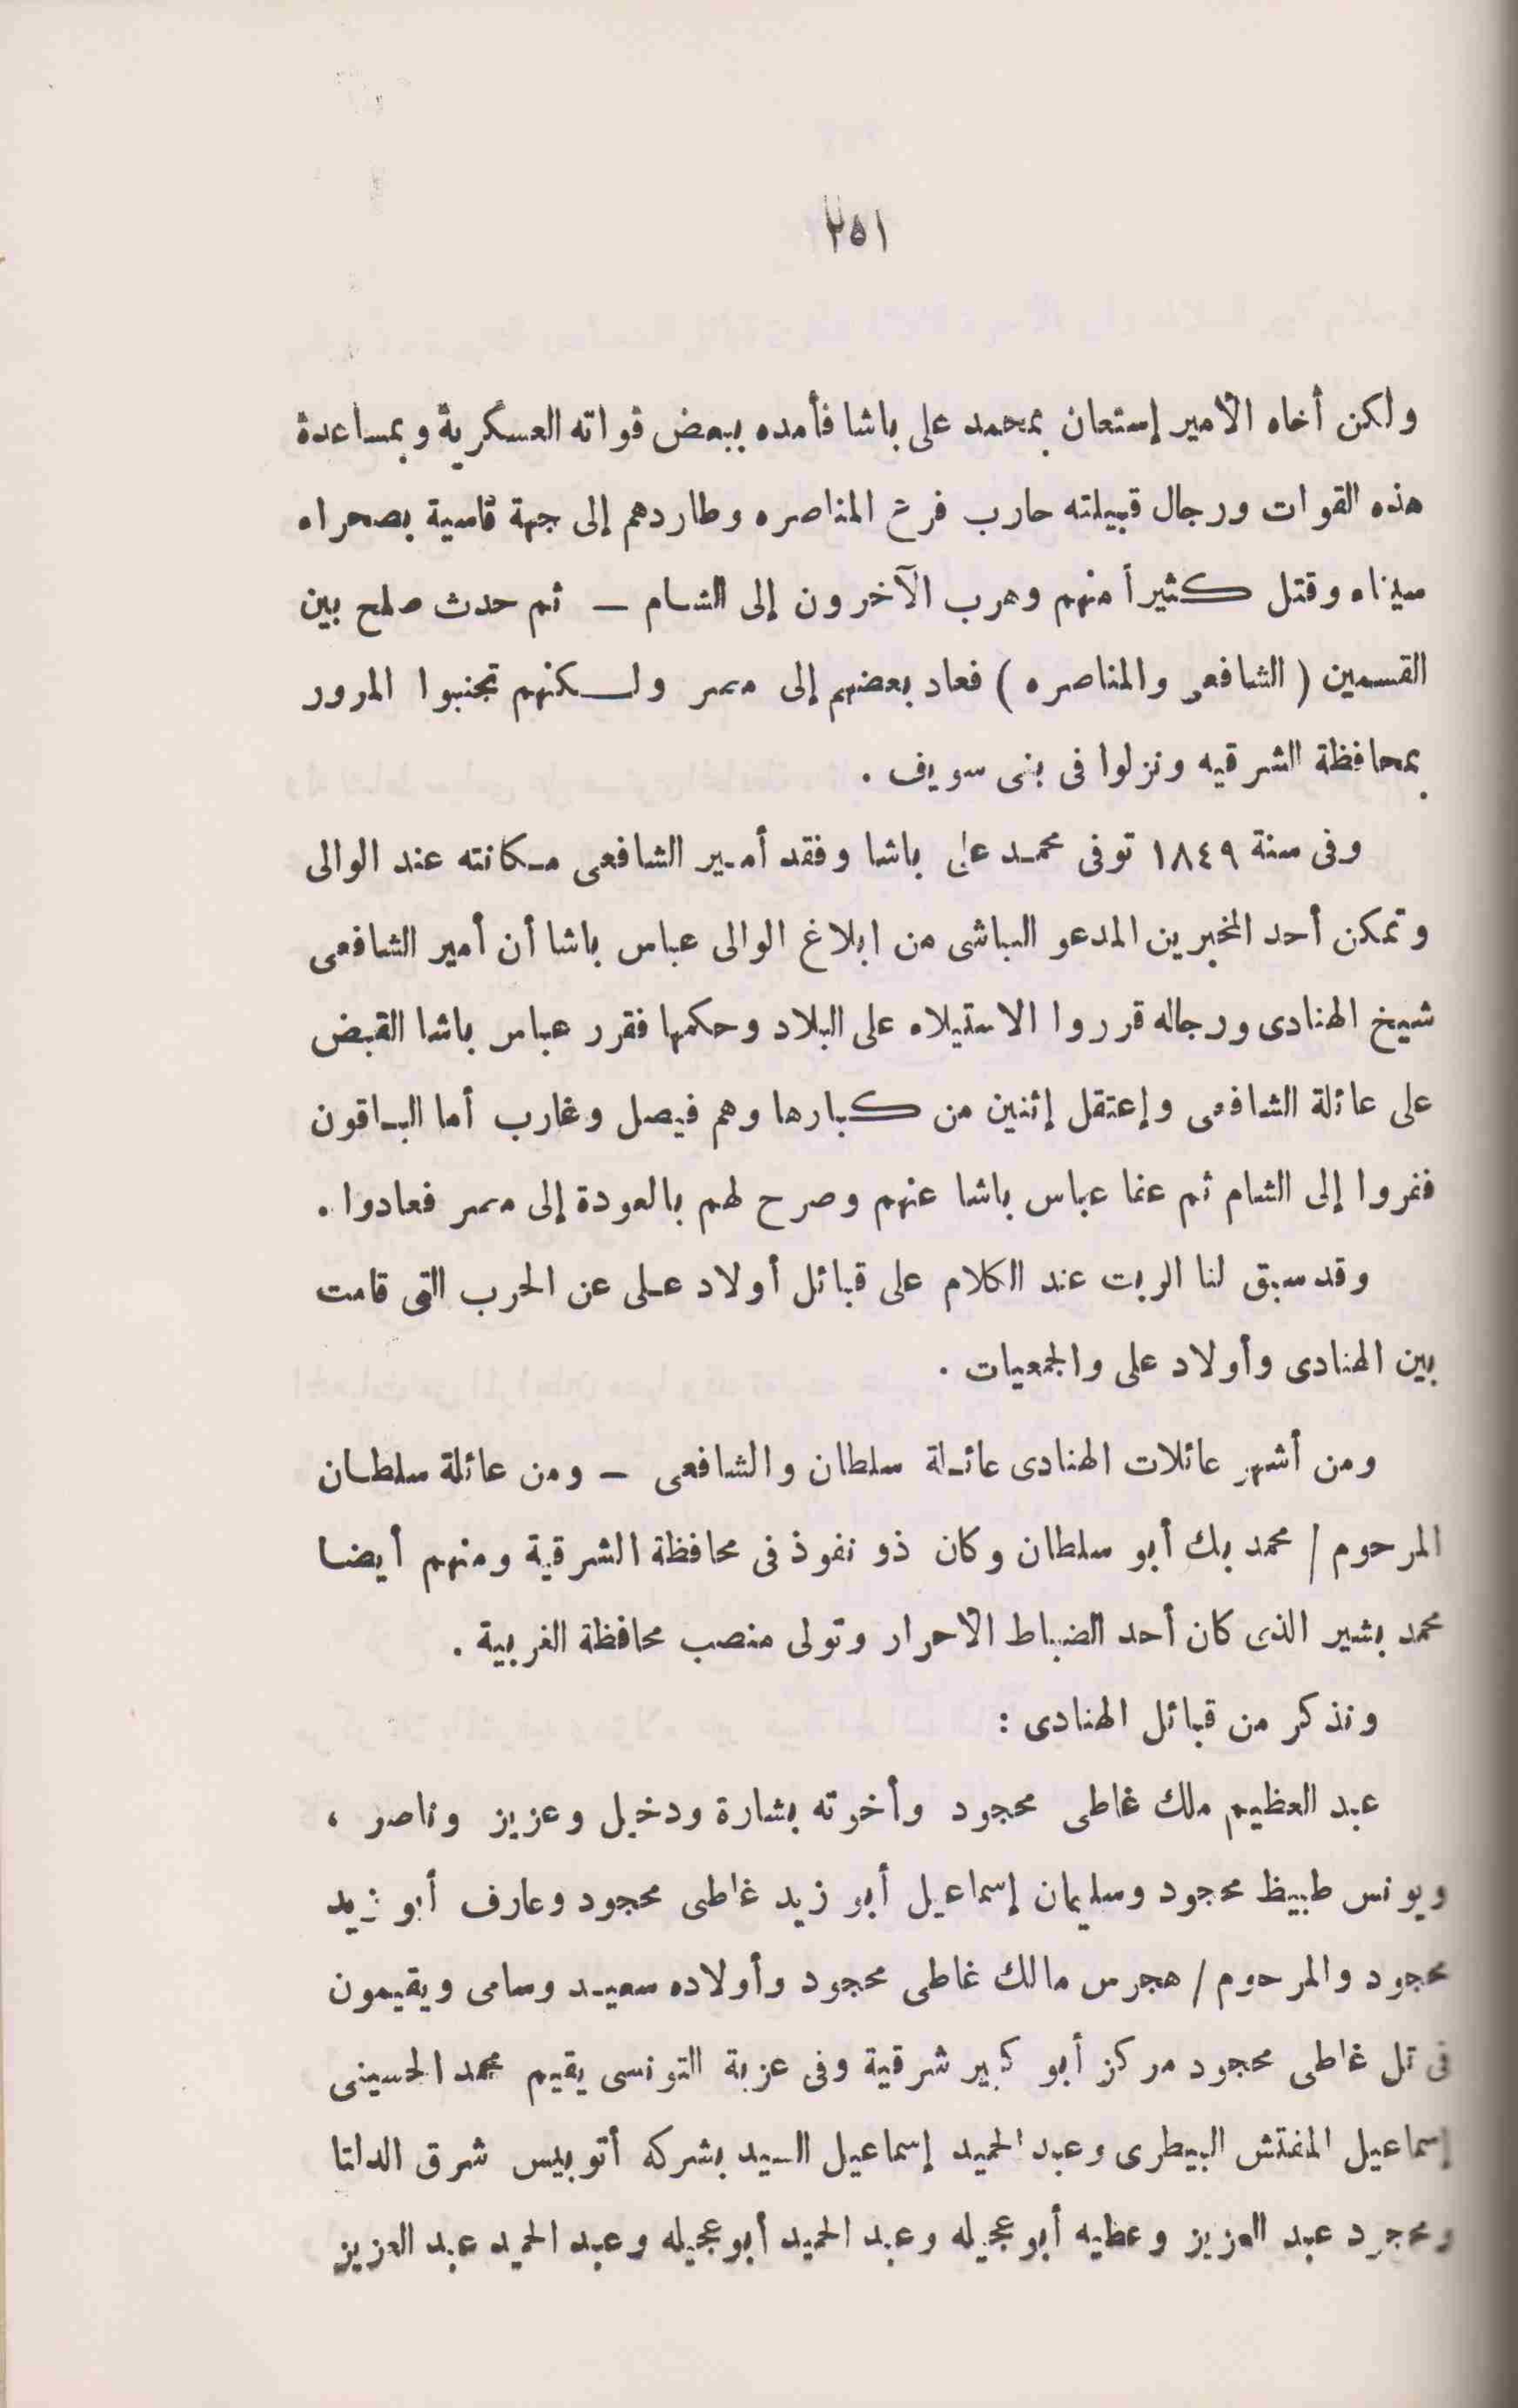 ٢٥١
ولكن أخاه الأمير إستعان بمحمد على باشا فأمده ببعض قواته العسكرية وبمساعدة
هذه القوات ورجال قبيلته حارب فرع المناصره وطاردهم إلى جهة قاسية بصحراء
سيناء وقتل كثيراً منهم وهرب الآخرون إلى الشام — ثم حدث صلح بين
القسمين ( الشافعى والمناصره ) فعاد بعضهم إلى مصر ولكنهم تجنبوا المرور
بمحافظة الشرقيه ونزلوا فى بنى سويف .
وفى سنة ١٨٤٩ توفى محمد على باشا وفقد أمير الشافعى مكانته عند الوالى
وتمكن أحد المخبرين المدعو الباشى من ابلاغ الوالى عباس باشا أن أمير الشافعى
شيخ الهنادى ورجاله قرروا الاستيلاء على البلاد وحكمها فقرر عباس باشا القبض
على عائلة الشافعى وإعتقل إثنين من كبارها وهم فيصل وغارب أما الباقون
ففروا إلى الشام ثم عفا عباس باشا عنهم وصرح لهم بالعودة إلى مصر فعادوا .
وقد سبق لنا عند الكلام على قبائل أولاد على عن الحرب التى قامت
بين الهنادى وأولاد على والجمعيات .
ومن أشهر عائلات الهنادى عائلة سلطان والشافعى — ومن عائلة سلطان
المرحوم / محمد بك أبو سلطان وكان ذو نفوذ فى محافظة الشرقية ومنهم أيضا
محمد بشير الذى كان أحد الضباط الأحرار وتولى منصب محافظة الغربية .
ونذكر من قبائل الهنادى :
عبد العظيم ملك غاطى محجود وأخوته بشارة ودخيل وعزيز وناصر ،
ويونس طبيظ محجود وسليمان إسماعيل أبو زيد غاطى محجود وعارف أبو زيد
محجود والمرحوم / هجرس مالك غاطى محجود وأولاده سعيد وسامى ويقيمون
فى تل غاطى محجود مركز أبو كبير شرقية وفى عزبة التونسى يقيم محمد الحسينى
إسماعيل المفتش البيطرى وعبد الحميد إسماعيل السيد بشركه أتوبيس شرق الدلتا
ومحجود عبد العزيز وعطيه أبو عجيله وعبد الحميد أبو عجيله وعبد الحميد عبد العزيز